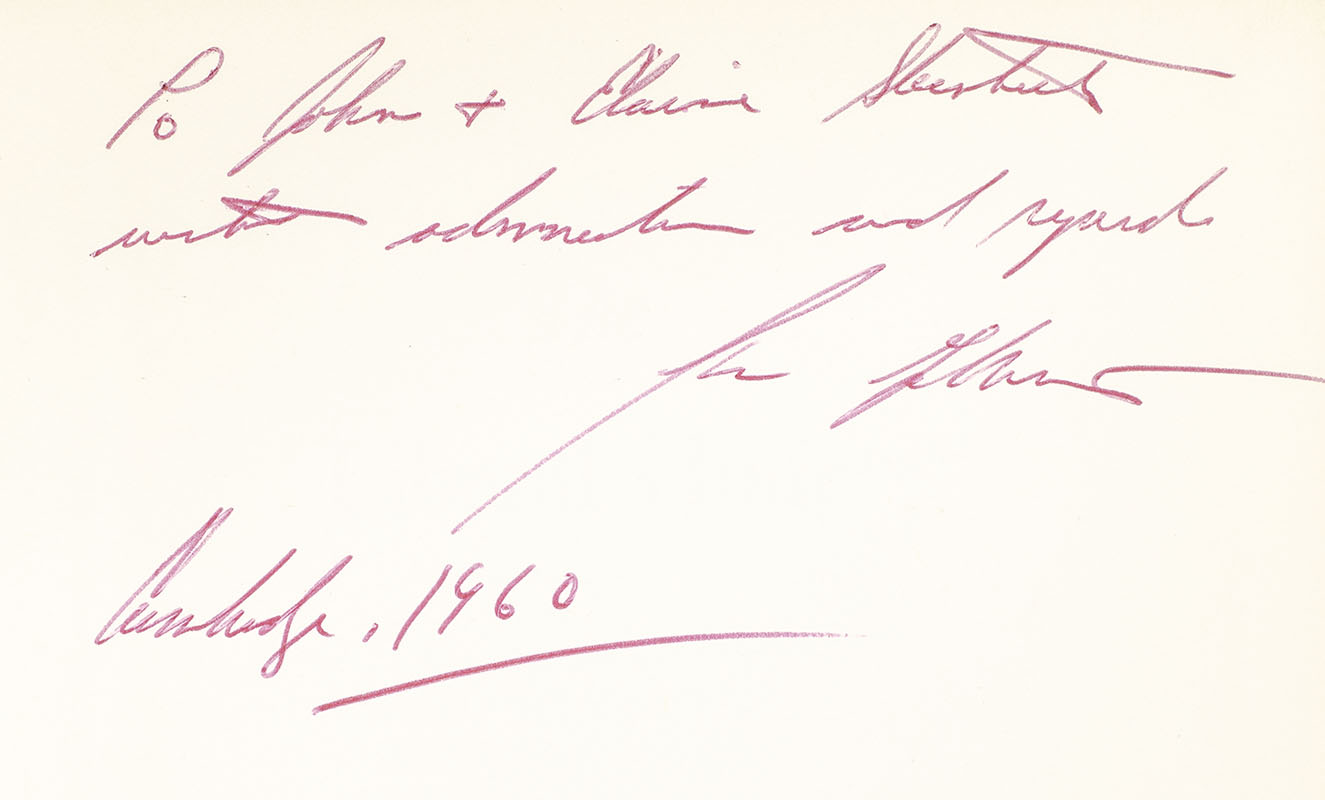 To John + Elaine Steinbeck
with admiration and regards
Cambridge, 1960